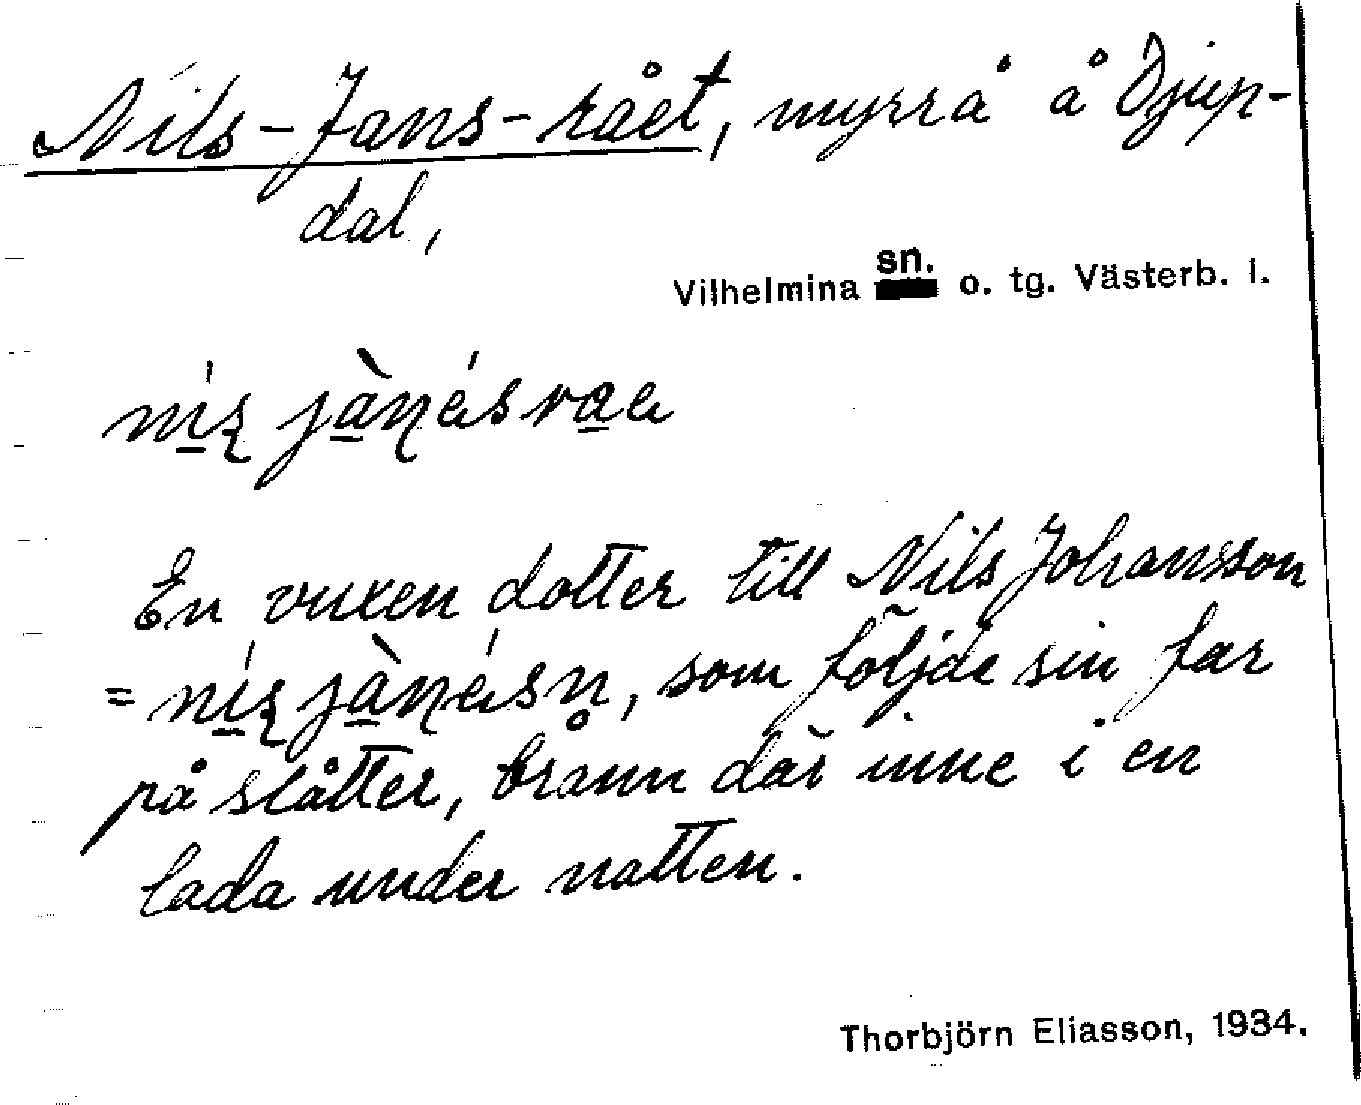 Nils-Jans-rået, myrrå å Djup-
dal,
Vilhelmina sn. o. tg. Västerb. l.
En vuxen dotter till Nils Johansson
=, som följde sin far
på slåtter, brann där inne i en
lada under natten.
Thorbjörn Eliasson, 1934.